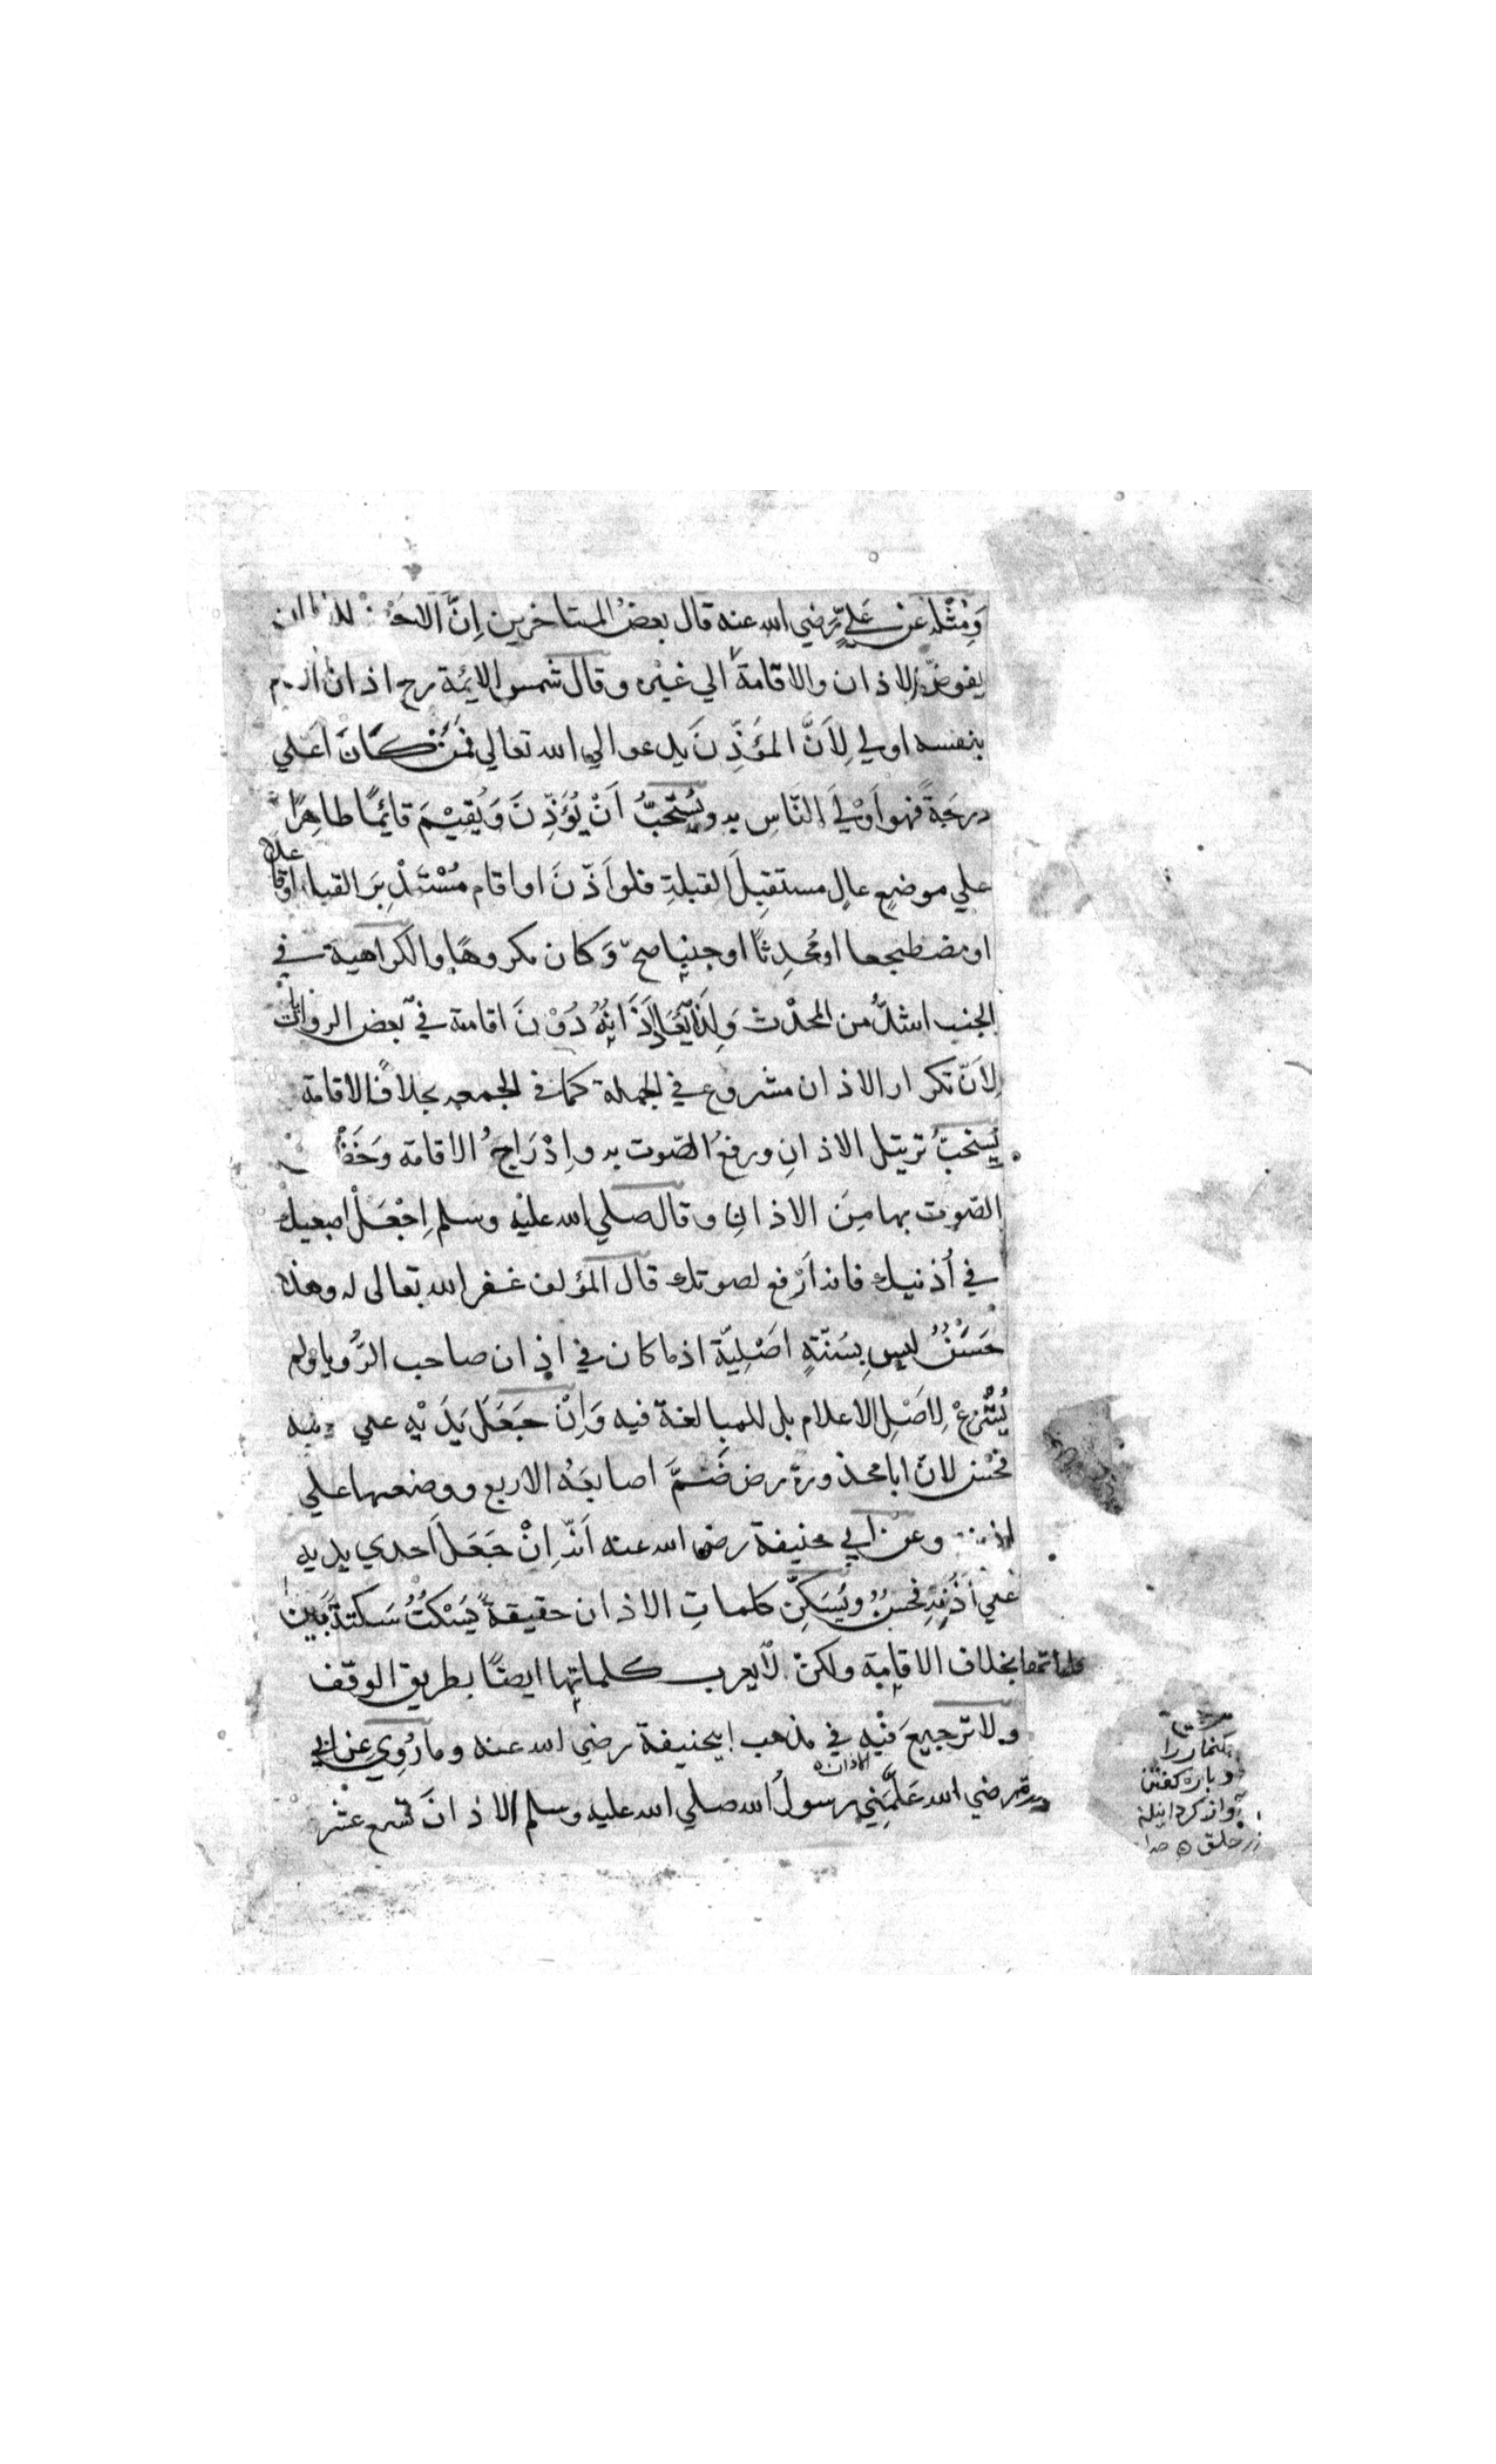 وَمِثْلُه عَنْ عَلِيٍّ رَضي الله عنه قال بعضُ المتاخرين اِنَّ
يفوض الاذان والاقامة الي غيره وقال شمس الايمة رح اذان
بنفسه اولي لِاَنَّ المؤَذِّنَ يدعوا الي الله تعالي فَمَنْ كَانَ اَعلي
درجَةً فهو اَوْلَي النّاسِ به ويُسْتحَبُّ اَنْ يُؤَذِّنَ وَيُقِيْمَ قائِمًا طاهِرًا
علي موضعٍ عالٍ مستقبِلَ القبلةِ فلو اَذّنَ او اقام مُسْتَدْبِرَ القبلة
او مضطجعا او مُحدِثًا او جنبا صحّ وَكان مكروهًا والكراهية في
الجنب اشدُّ من المحدث وَلِذَا يُعَادُ اَذَانُهُ دُوْنَ اقامة في بعض الروايات
لِاَنّ تكرار الاذان مشروع في الجملة كما في الجمعه بخلاف الاقامة
يُستحبُّ ترتيل الاذانِ ورفعُ الصّوت به واِدْرَاجُ الاقامة وَخَفْ
الصّوت بها مِنَ الاذانِ وقال صلي الله عليه وسلم اِجْعَلْ اصبعيك
في اُذنيك فانه اَرْفع لصوتك قال المؤلف غفر الله تعالى له وهذا
حَسَنٌ ليس بِسُنّةٍ اَصْلِيّة اذ ما كان في اذان صاحب الرُّويا ولم
يُشْرَعْ لِاَصْلِ الاعلام بل للمبالغة فيه وَاِنْ جَعَلَ يَدَيْهِ علي
فحسن لانّ ابا محذورة رض ضَمَّ اصابعَهُ الاربع ووضعها علي
وعن ابي حنيفة رضي الله عنه اَنّه اِنْ جَعَلَ اَحدي يديه
علي اُذُنِهِ فحسنٌ ويُسَكِّن كلماتِ الاذان حقيقةً يَسْكُتُ سَكتةً بَين
كلماتها بخلاف الاقامة ولكنْ لا يعرب كلماتها ايضًا بطريق الوقف
ولا ترجيعَ فيْهِ في مذهب ابيحنيفة رضي الله عنه وما رُوِي عن ابي
رضي الله عَلَّمَني رسولُ الله صلي الله عليه وسلم الاذانَ تسع عشر